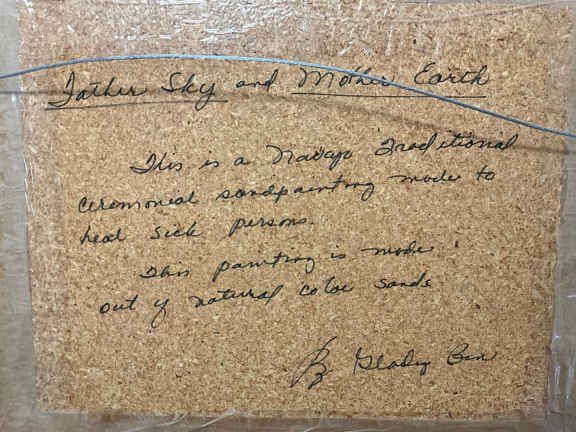 Father Sky and Mother Earth
This is a Navajo Traditional
ceremonial sandpainting made to
heal sick persons.
This painting is made
out of natural color sands
By Gladys Ben